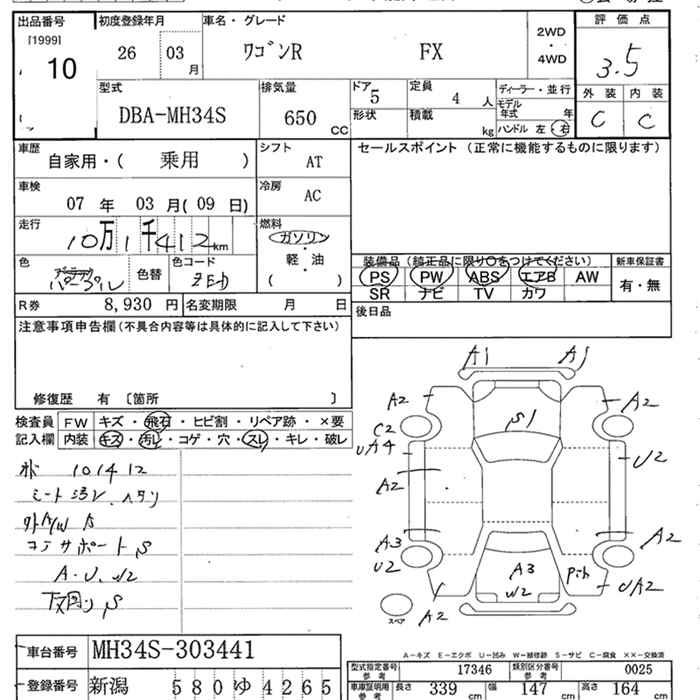 出品番号 初度登録年月 車名・グレード 評価点
[1999] 10 26 03 月 ワゴンR FX 2WD・4WD 3.5
型式 排気量 ドア 定員 ディーラー・並行 外装 内装
DBA-MH34S 650 CC 5 4 人 モデル年式 年 C C
形状 積載 kg ハンドル 左・右
車歴 自家用・( 乗用 ) シフト AT セールスポイント (正常に機能するものに限ります)
車検 07 年 03 月( 09 日) 冷房 AC
走行 10万1千412 km 燃料 ガソリン・軽・油 ( )
装備品 (純正品に限り○をつけてください) 新車保証書
色 パープル 色替 色コード ZED
PS PW ABS エアB AW 有・無
SR ナビ TV カワ
R券 8,930 円 名変期限 月 日 後日品
注意事項申告欄(不具合内容等は具体的に記入して下さい)
修復歴 有 〔箇所 〕
検査員 FW キズ・飛石・ヒビ割・リペア跡・×要
記入欄 内装 キズ・汚レ・コゲ・穴・スレ・キレ・破レ
101412
シート汚レ、ヘタリ
コアサポート S
A・U、W2
下廻り S
A1 A1
A2 S1 A2
C2
UA4 U2
A2
A3 A2
U2 A3 UA2
W2
A2
スペア
A-キズ E-エクボ U-凹み W-補修跡 S-サビ C-腐食 ××-交換済
車台番号 MH34S-303441
型式指定番号 参考 17346 類別区分番号 参考 0025
登録番号 新潟 580ゆ4265
車庫証明用 参考 長さ 339 cm 幅 147 cm 高さ 164 cm